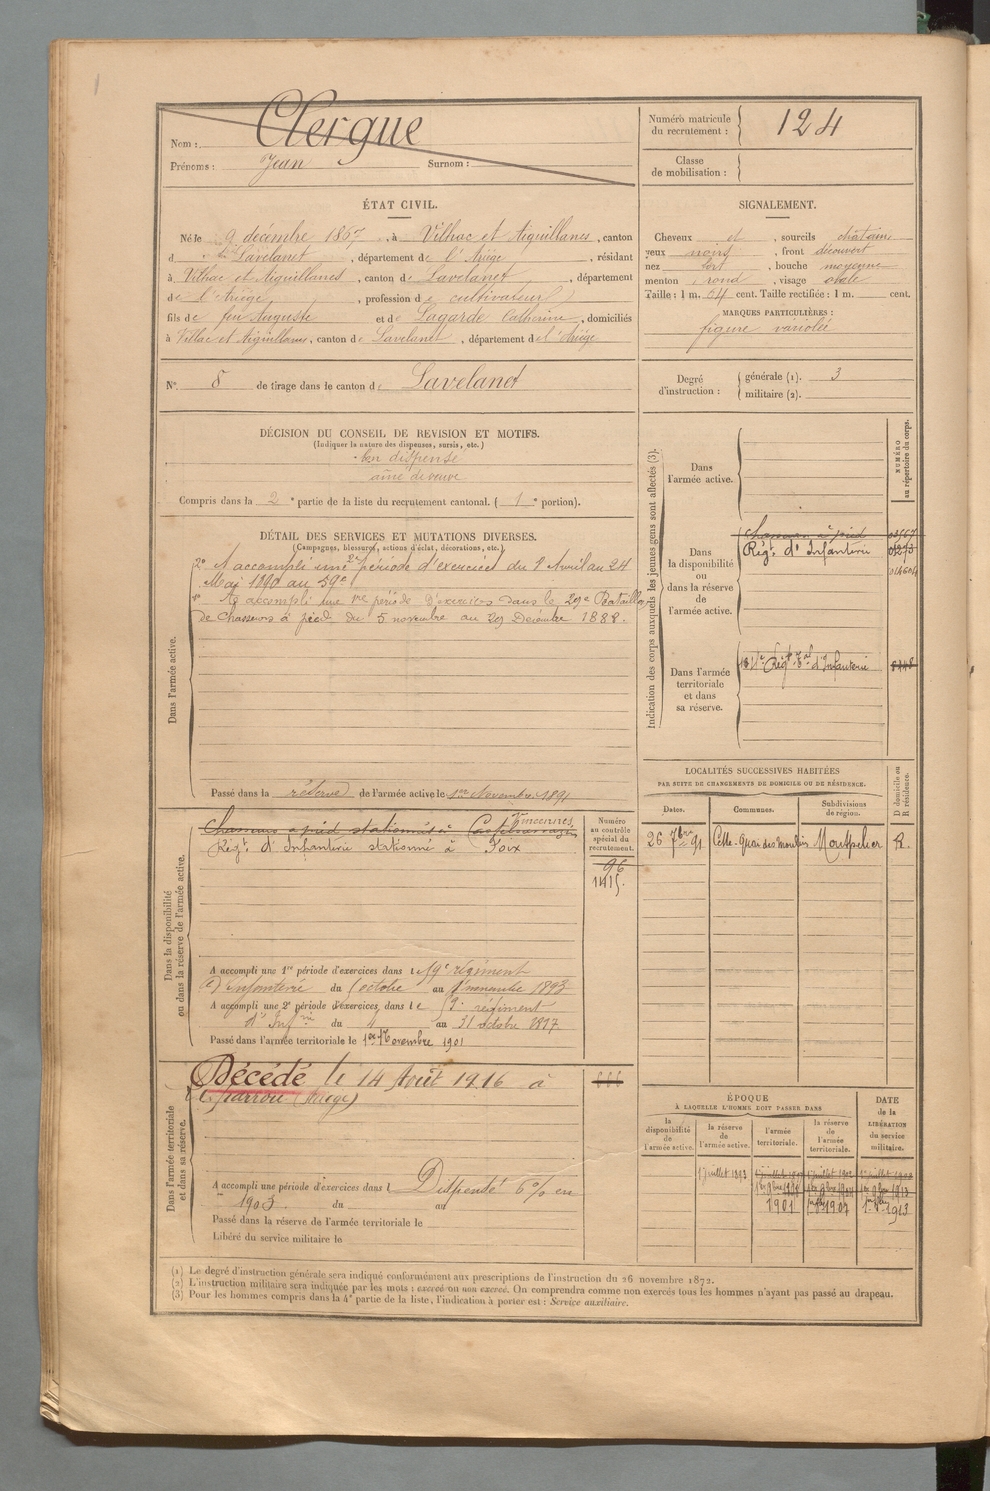 Nom : Clergue
Prénoms : Jean Surnom :
Numéro matricule du recrutement : 124
Classe de mobilisation :
ÉTAT CIVIL.
Né le 9 décembre 1867, à Vilhac et Aiguillanes, canton
de Lavelanet, département de l'Ariège, résidant
à Vilhac et Aiguillanes, canton de Lavelanet, département
de l'Ariège, profession de cultivateur
fils de feu Auguste et de Lagarde Catherine, domiciliés
à Villac et Aiguillanes, canton de Lavelanet, département de l'Ariège
N° 8 de tirage dans le canton de Lavelanet
SIGNALEMENT.
Cheveux et, sourcils chatains
yeux noirs, front découvert
nez fort, bouche moyenne
menton rond, visage ovale
Taille : 1 m. 64 cent. Taille rectifiée : 1 m. cent.
MARQUES PARTICULIÈRES :
figure variolée
Degré d'instruction : générale (1). 3
militaire (2).
DÉCISION DU CONSEIL DE REVISION ET MOTIFS.
(Indiquer la nature des dispenses, sursis, etc.)
bon dispensé
aîné de veuve
Compris dans la 2e partie de la liste du recrutement cantonal. (1e portion).
DÉTAIL DES SERVICES ET MUTATIONS DIVERSES.
(Campagnes, blessures, actions d'éclat, décorations, etc.)
Dans l'armée active.
2° A accompli une 2e période d'exercices du 1 Avril au 24
Mai 1890 au 59e
1° A accompli une 1re période d'exercices dans le 29e Bataillon
de Chasseurs à pied du 5 novembre au 29 Décembre 1888.
Passé dans la réserve de l'armée active le 1er Novembre 1891
Dans la disponibilité ou dans la réserve de l'armée active.
Chasseurs à pied stationnés à Castelsarrasin Vincennes
Régt d'Infanterie stationné à Foix
Numéro au contrôle spécial du recrutement.
96
1415.
A accompli une 1re période d'exercices dans le 59e régiment
d'infanterie du octobre au 1 novembre 1893
A accompli une 2e période d'exercices, dans le 59e régiment
d'Infrie du 4 au 31 octobre 1897
Passé dans l'armée territoriale le 1er Novembre 1901
Dans l'armée territoriale et dans sa réserve.
Décédé le 14 Août 1916 à
(Ariège)
666
A accompli une période d'exercices dans l Dispensé 6% en
1903. du au
Passé dans la réserve de l'armée territoriale le
Libéré du service militaire le
Indication des corps auxquels les jeunes gens sont affectés (3).
NUMÉRO au répertoire du corps.
Dans l'armée active.
Dans la disponibilité ou dans la réserve de l'armée active.
Chasseurs à pied
Régt d'Infanterie
Dans l'armée territoriale et dans sa réserve.
Régt Tal d'Infanterie
LOCALITÉS SUCCESSIVES HABITÉES
PAR SUITE DE CHANGEMENTS DE DOMICILE OU DE RÉSIDENCE.
Dates. Communes. Subdivisions de région. D domicile ou R résidence.
26 7bre 91 Cette. Quai des moulins Montpelier R.
ÉPOQUE
À LAQUELLE L'HOMME DOIT PASSER DANS
DATE de la LIBÉRATION du service militaire.
la disponibilité de l'armée active. la réserve de l'armée active. l'armée territoriale. la réserve de l'armée territoriale.
1 juillet 1893
1901 1907 1913
(1) Le degré d'instruction générale sera indiqué conformément aux prescriptions de l'instruction du 26 novembre 1872.
(2) L'instruction militaire sera indiquée par les mots : exercé ou non exercé. On comprendra comme non exercés tous les hommes n'ayant pas passé au drapeau.
(3) Pour les hommes compris dans la 4e partie de la liste, l'indication à porter est : Service auxiliaire.